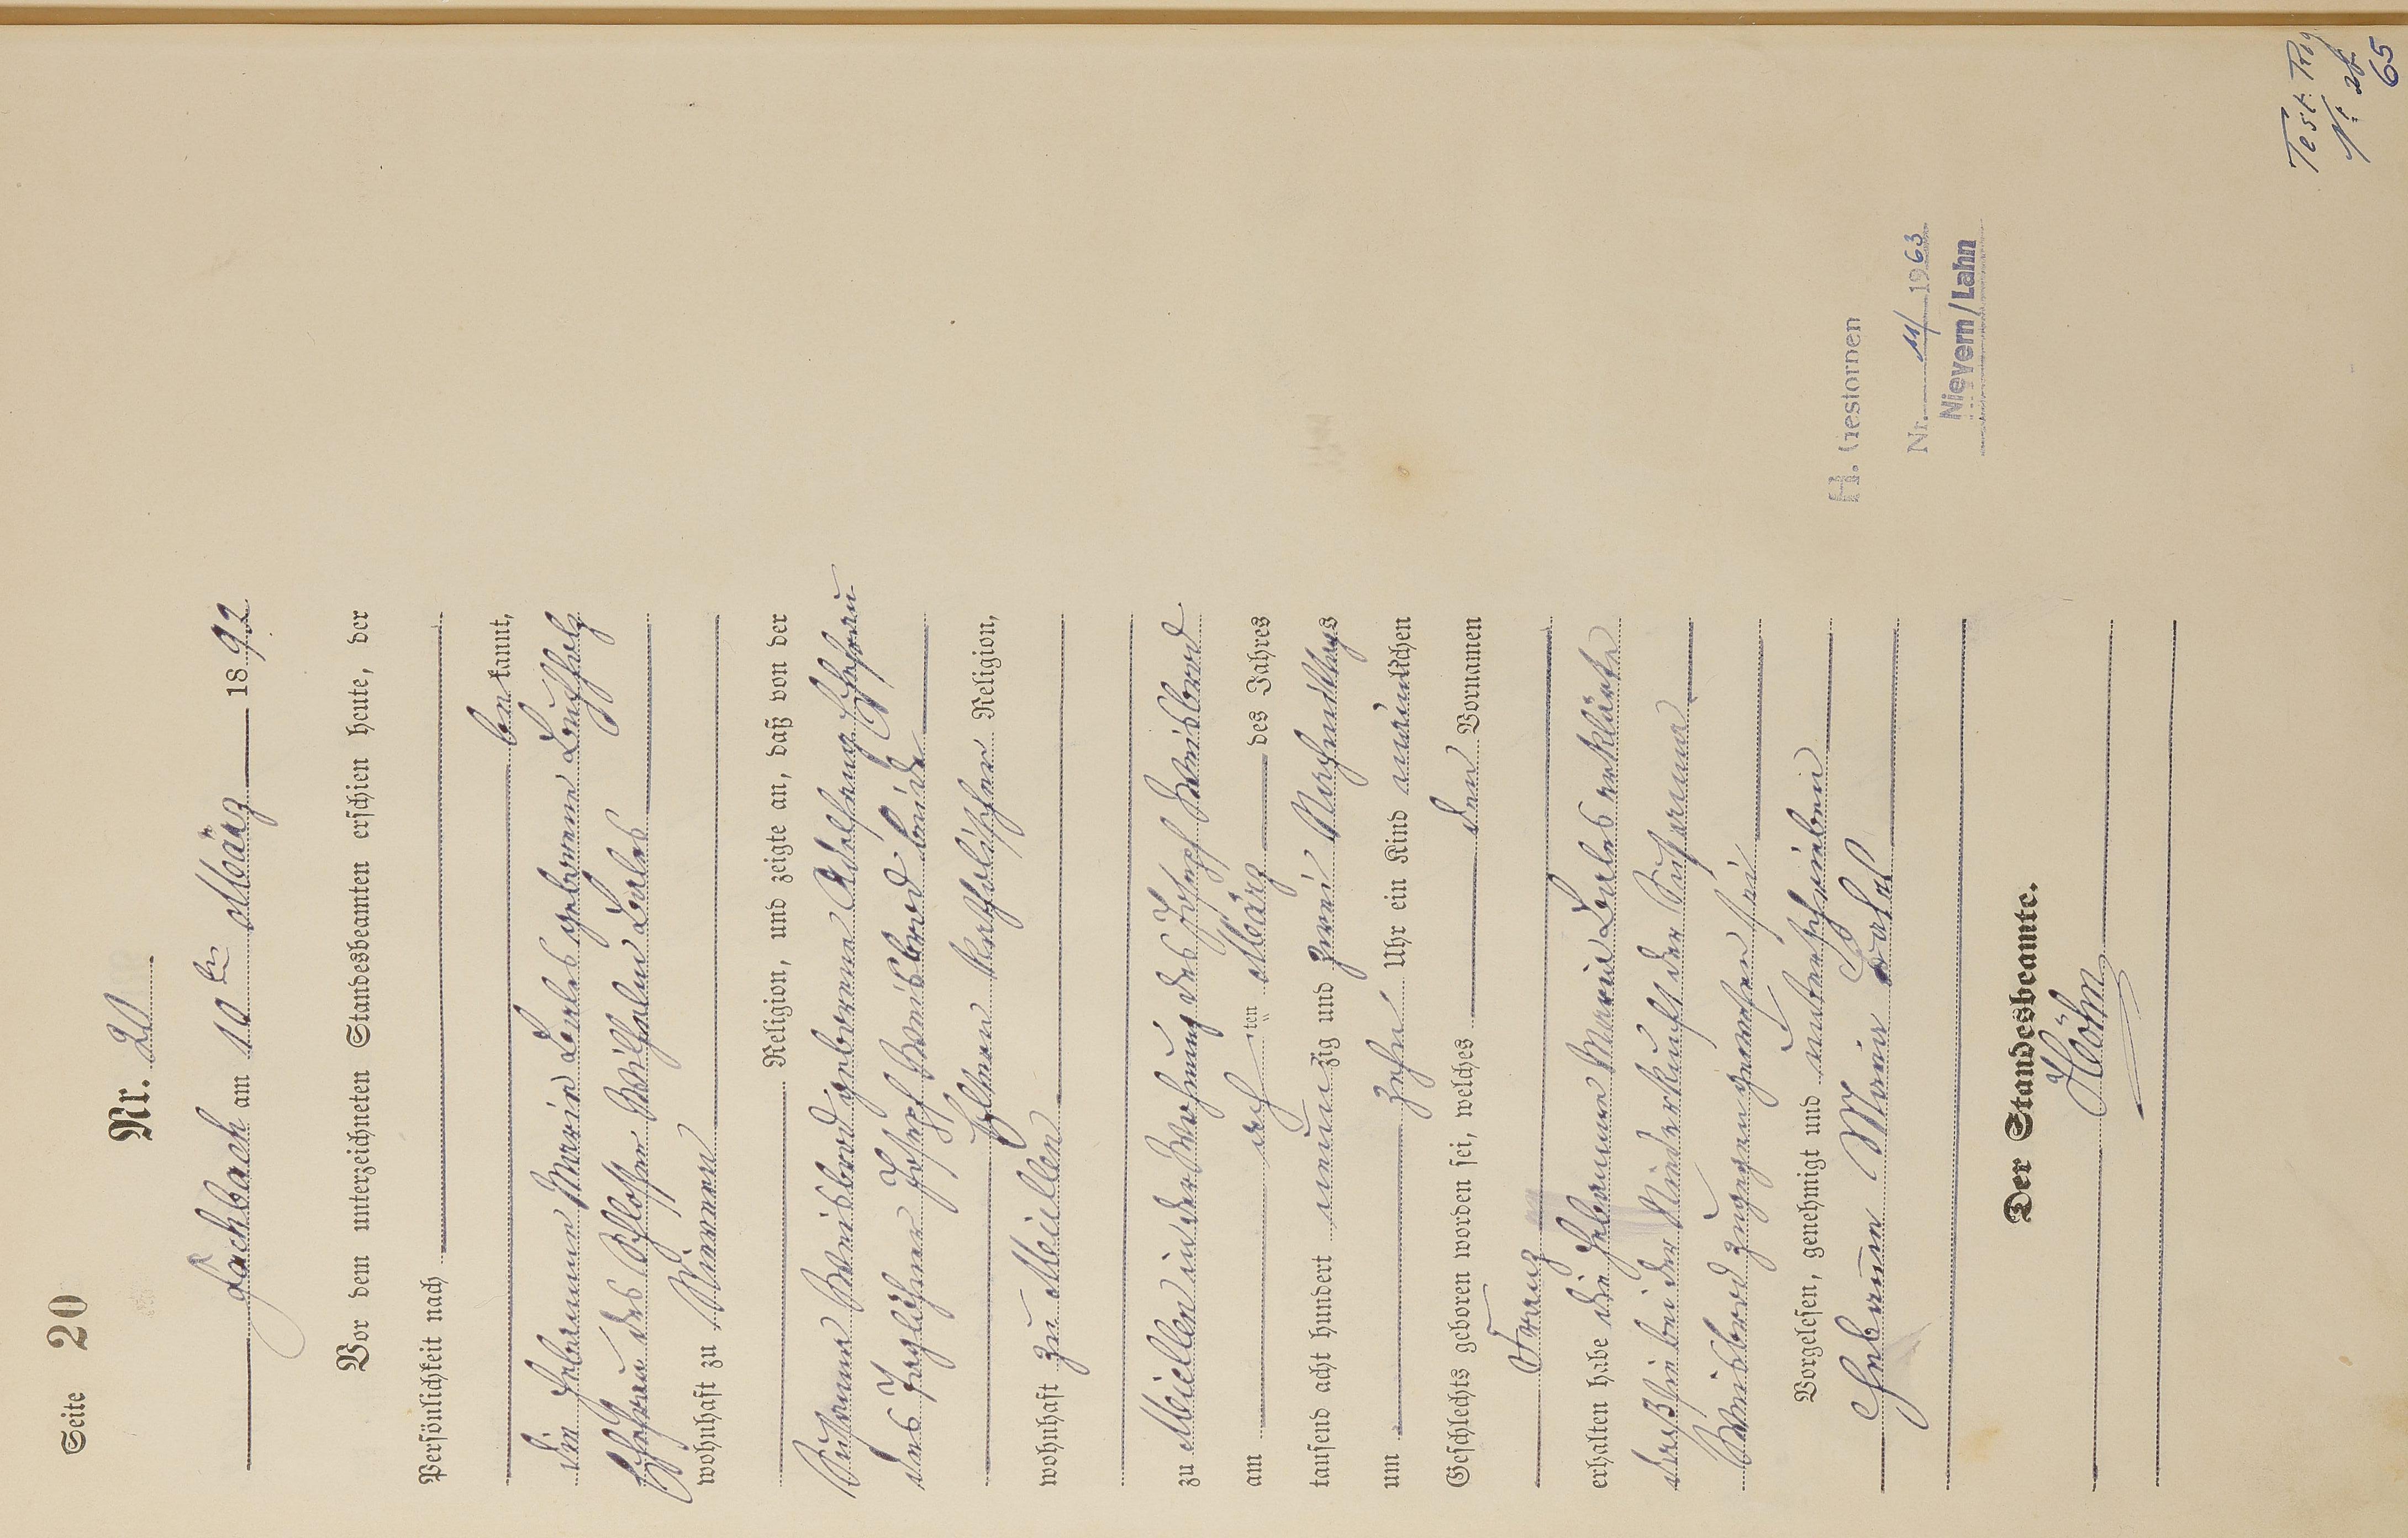 Seite 20
Nr. 20
Fachbach am 10ten März 1892
Vor dem unterzeichneten Standesbeamten erschien heute, der
Persönlichkeit nach
be kannt,
die Hebamme Maria Labes geborene Buchholz
Ehefrau des Schlosser Wilhelm Labes
wohnhaft zu Nievern
Religion, und zeigte an, daß von der
Susanna Weisbrod geborene Ehefrau
des Taglöhner Joseph Weisbrod beide
katholischer Religion,
wohnhaft zu Miellen
zu Miellen in der Wohnung des Joseph Weisbrod
am ach ten März des Jahres
tausend acht hundert neun zig und zwei Nachmittags
um zehn Uhr ein Kind männlichen
Geschlechts geboren worden sei, welches den Vornamen
Franz
erhalten habe die Hebamme Maria Labes erklärte
daß sie bei der Niederkunft der Susanna
Weisbrod zugegen gewesen sei
Vorgelesen, genehmigt und unterschrieben
Hebamm Maria
Der Standesbeamte.
Höhn
H. Gestorben
Nr. 11/1963
Nievern/Lahn
Test. Reg
Nr.
65